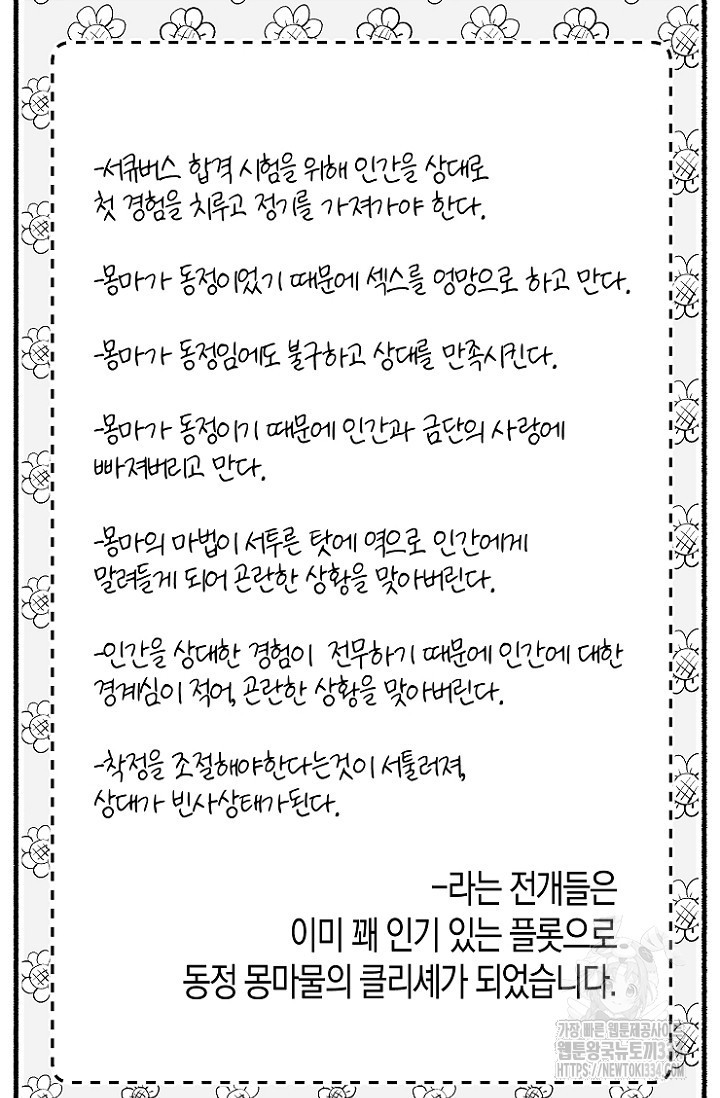 -서큐버스 합격 시험을 위해 인간을 상대로
첫 경험을 치루고 정기를 가져가야 한다.
-몽마가 동정이었기 때문에 섹스를 엉망으로 하고 만다.
-몽마가 동정임에도 불구하고 상대를 만족시킨다.
-몽마가 동정이기 때문에 인간과 금단의 사랑에
빠져버리고 만다.
-몽마의 마법이 서투른 탓에 역으로 인간에게
말려들게 되어 곤란한 상황을 맞아버린다.
-인간을 상대한 경험이 전무하기 때문에 인간에 대한
경계심이 적어, 곤란한 상황을 맞아버린다.
-착정을 조절해야한다는것이 서툴러져,
상대가 빈사상태가된다.
-라는 전개들은
이미 꽤 인기 있는 플롯으로
동정 몽마물의 클리셰가 되었습니다.
가장 빠른 웹툰제공사이트
웹툰왕국뉴토끼33